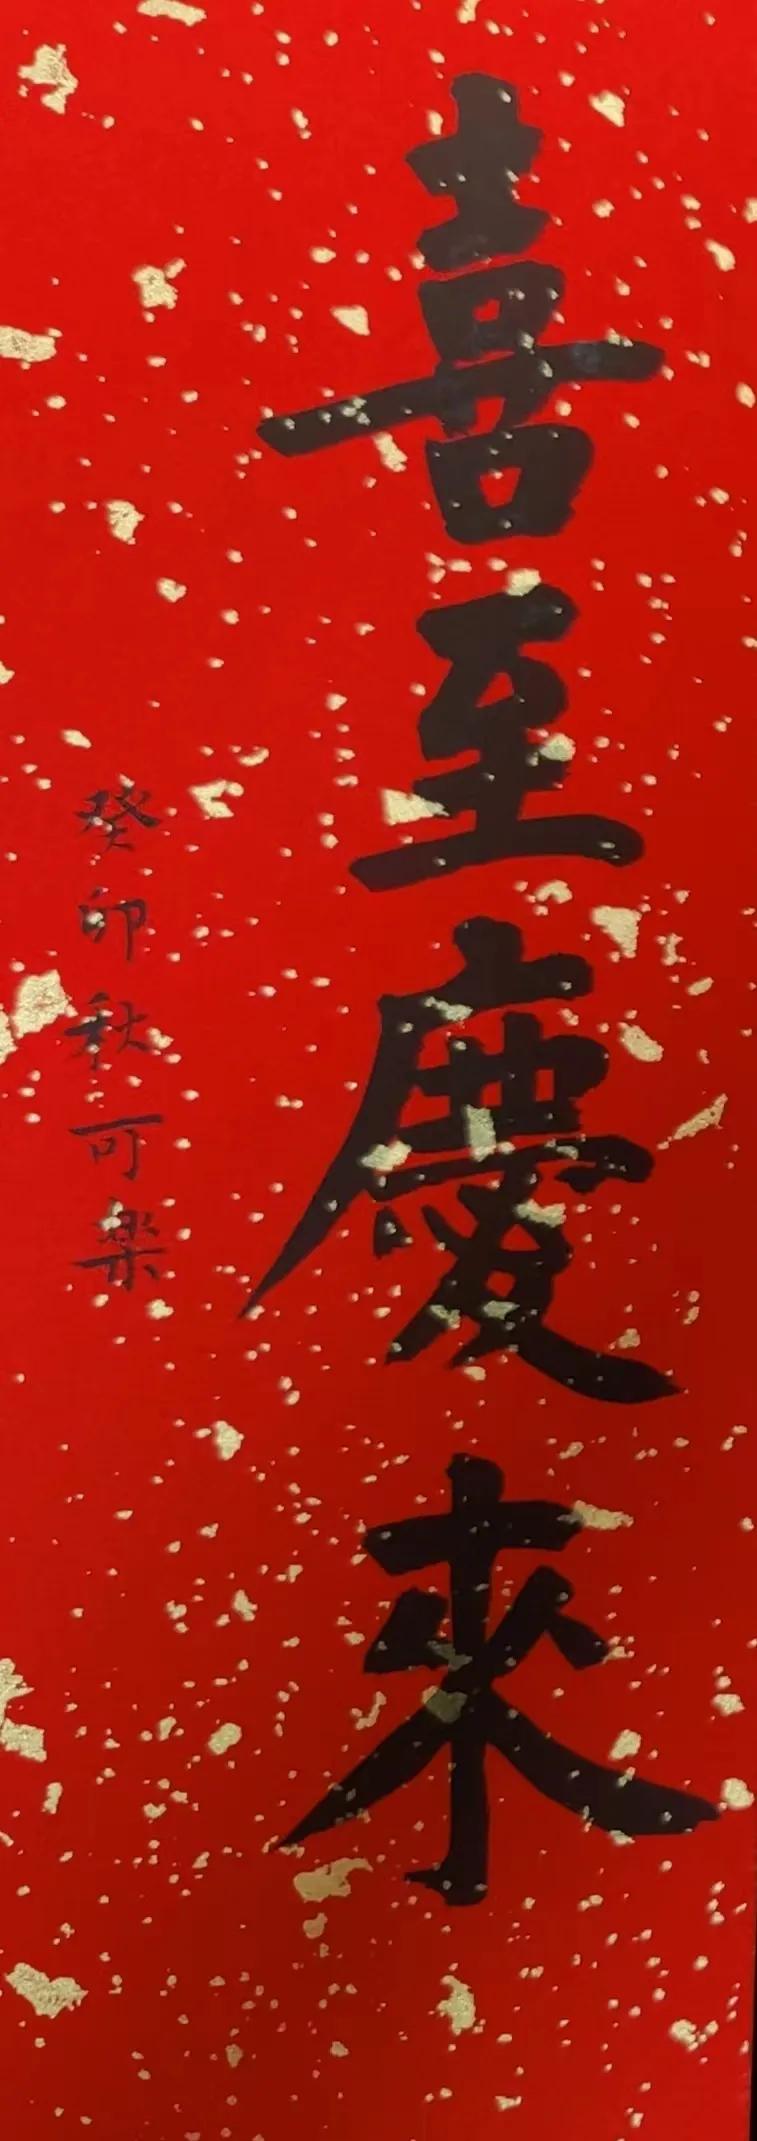 喜至慶來
癸卯秋可樂